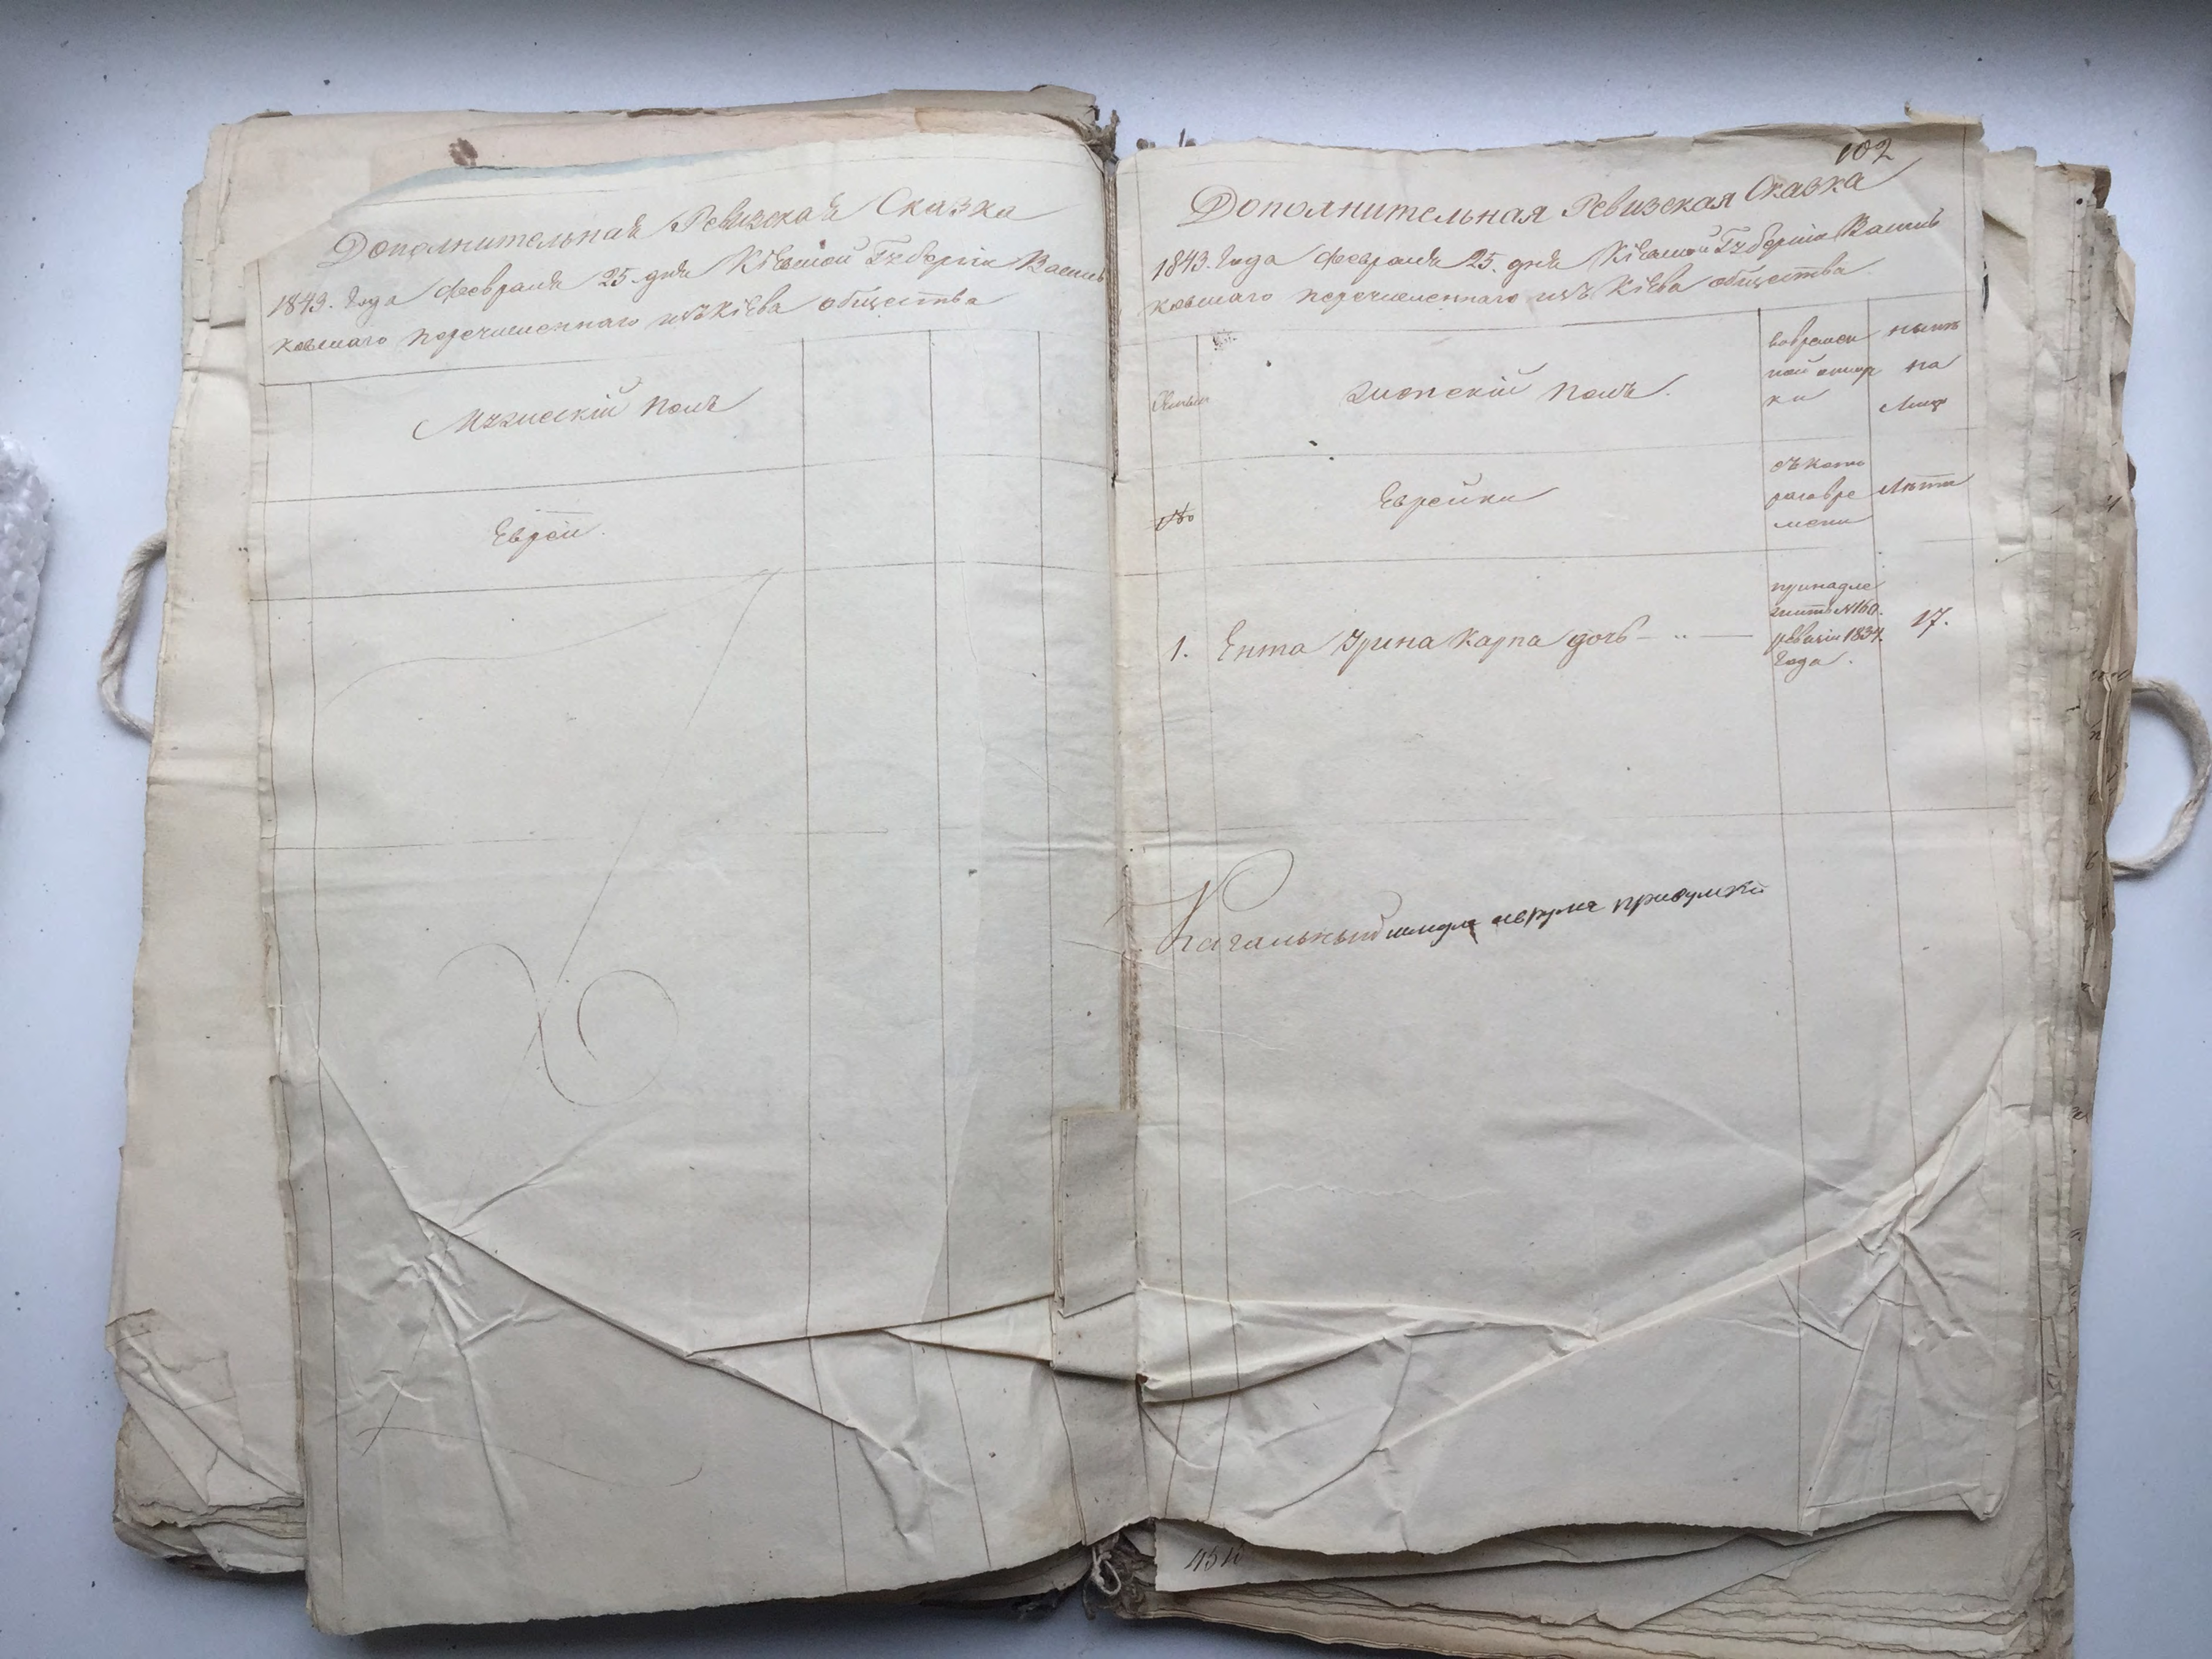 Дополнительная Ревизская Сказка
1843. Года февраля 25. дня Кіевской Губерніи Василь
ковскаго перечисленнаго изъ Кіева общества
Мужескій полъ
Евреи.
102
Дополнительная Ревизская Сказка
1843. Года февраля 25. дня Кіевской Губерніи Василь
ковскаго перечисленнаго изъ Кіева общества
Женскій полъ.
во времен
ной отлуч
ки
нынѣ
на
лицо
№
Еврейки
съ кото
раго вре
мени
Лѣта
1. Ента Юрина Карпа дочь
принадле
житъ №160.
ревизіи 1834.
Года.
17.
Кагальный